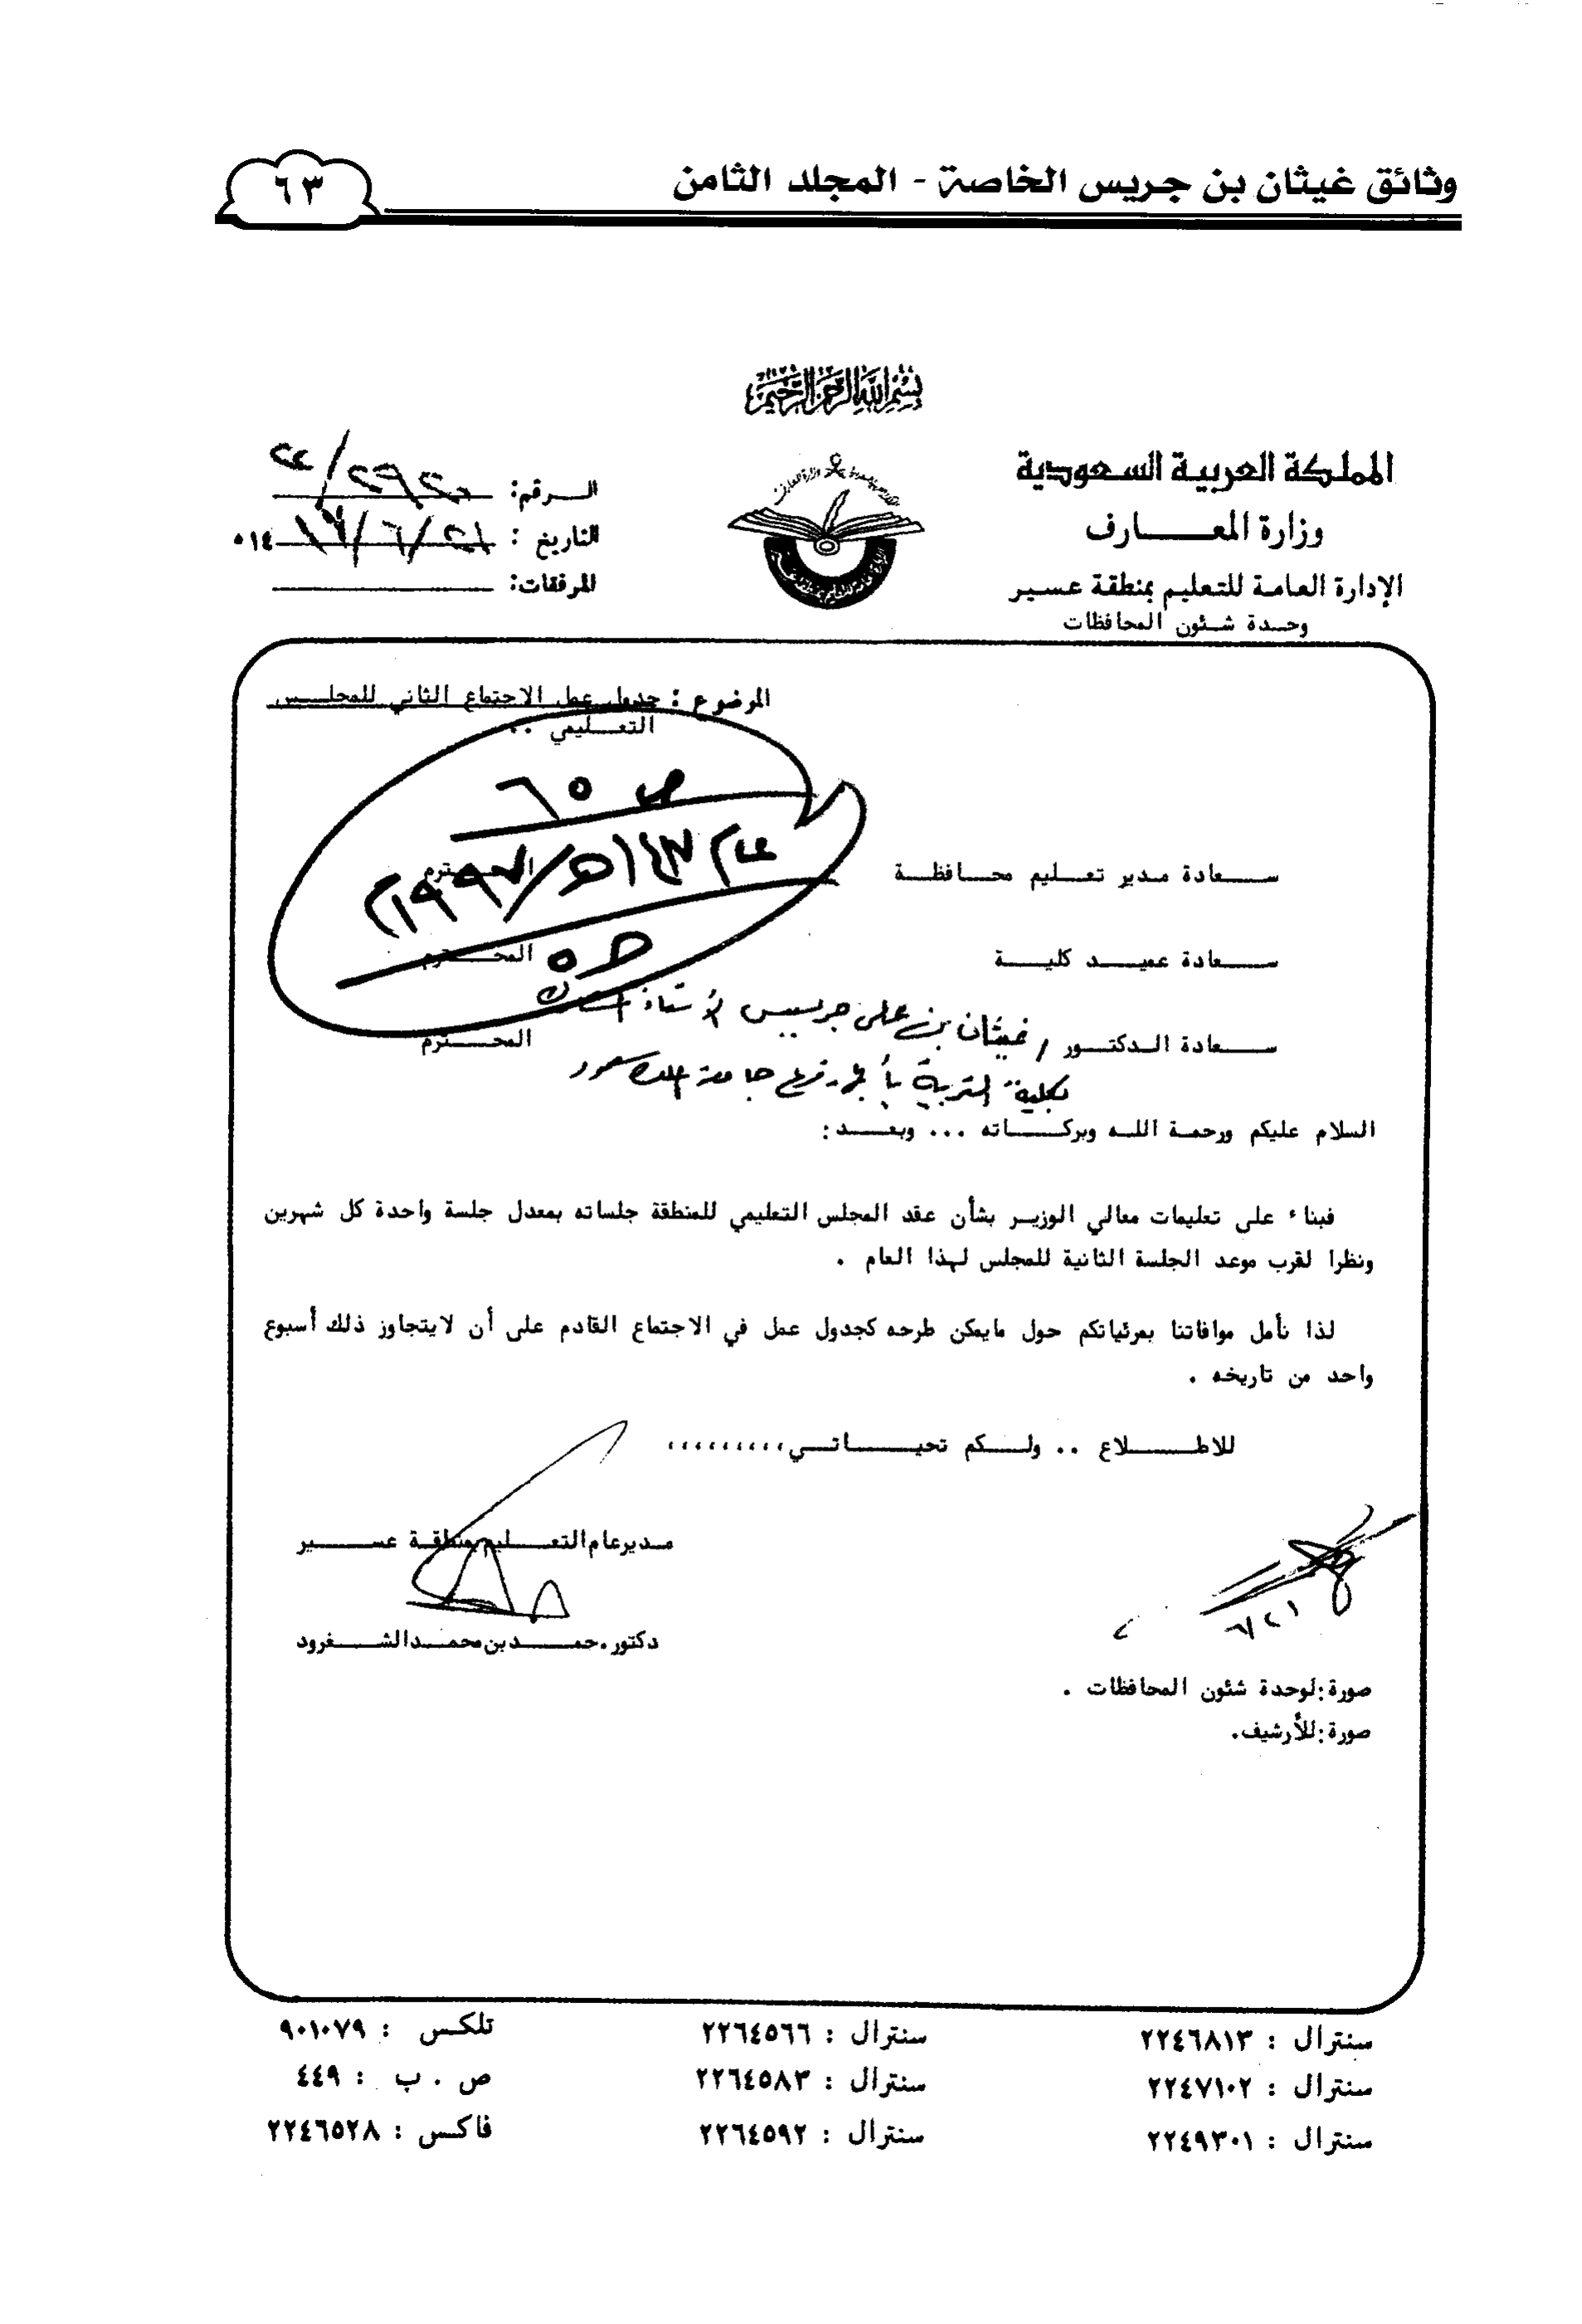 وثائق غيثان بن جريس الخاصة - المجلد الثامن
٦٣
بسم الله الرحمن الرحيم
المملكة العربية السعودية
وزارة المعـــارف
الإدارة العامة للتعليم بمنطقة عسير
وحدة شئون المحافظات
الـرقم:
التاريخ : ٢١/٦/١٧ ١٤هـ
المرفقات:
الموضوع : جدول عمل الاجتماع الثاني للمجلس
التعـليمي ..
ص ٦٥
سـعادة مدير تعـليم محـافظة المحـترم
سـعادة عميـد كليـة المحـترم
سـعادة الـدكتـور / غيثان بن علي جريس الأستاذ المحـترم
بكلية التربية بأبها فرع جامعة الملك سعود
السلام عليكم ورحمة اللـه وبركـاته ... وبعـد :
فبناء على تعليمات معالي الوزيـر بشأن عقد المجلس التعليمي للمنطقة جلساته بمعدل جلسة واحدة كل شهرين
ونظرا لقرب موعد الجلسة الثانية للمجلس لهذا العام .
لذا نأمل موافاتنا بمرئياتكم حول مايمكن طرحه كجدول عمل في الاجتماع القادم على أن لايتجاوز ذلك أسبوع
واحد من تاريخه .
للاطـلاع .. ولـكم تحيـاتـي،،،،،،،،،
مـديرعام التعـليم بمنطقـة عسـير
دكتور.حمـد بن محمـد الشـغرود
صورة:لوحدة شئون المحافظات .
صورة:للأرشيف.
سنترال : ٢٢٤٦٨١٣
سنترال : ٢٢٤٧١٠٢
سنترال : ٢٢٤٩٣٠١
سنترال : ٢٢٦٤٥٦٦
سنترال : ٢٢٦٤٥٨٣
سنترال : ٢٢٦٤٥٩٢
تلكس : ٩٠١٠٧٩
ص . ب : ٤٤٩
فاكس : ٢٢٤٦٥٢٨